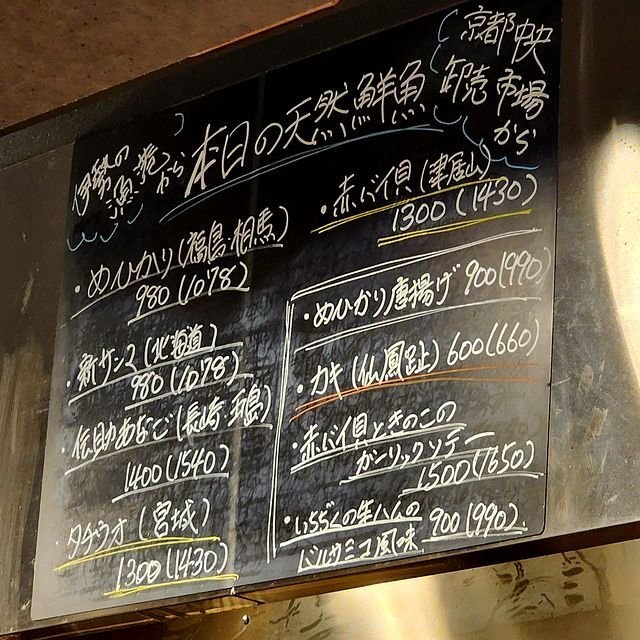 本日の天然鮮魚
京都中央
卸売市場
から
伊勢の
漁港
から
・めひかり(福島・相馬)
980(1078)
・新サンマ(北海道)
980(1078)
・伝助あなご(長崎・対馬)
1400(1540)
・タチウオ(宮城)
1300(1430)
・赤バイ貝(津居山)
1300(1430)
・めひかり唐揚げ 900(990)
・カキ(仙鳳趾)600(660)
・赤バイ貝ときのこの
ガーリックソテー
1500(1650)
・いちぢくの生ハムの
バルサミコ風味 900(990)